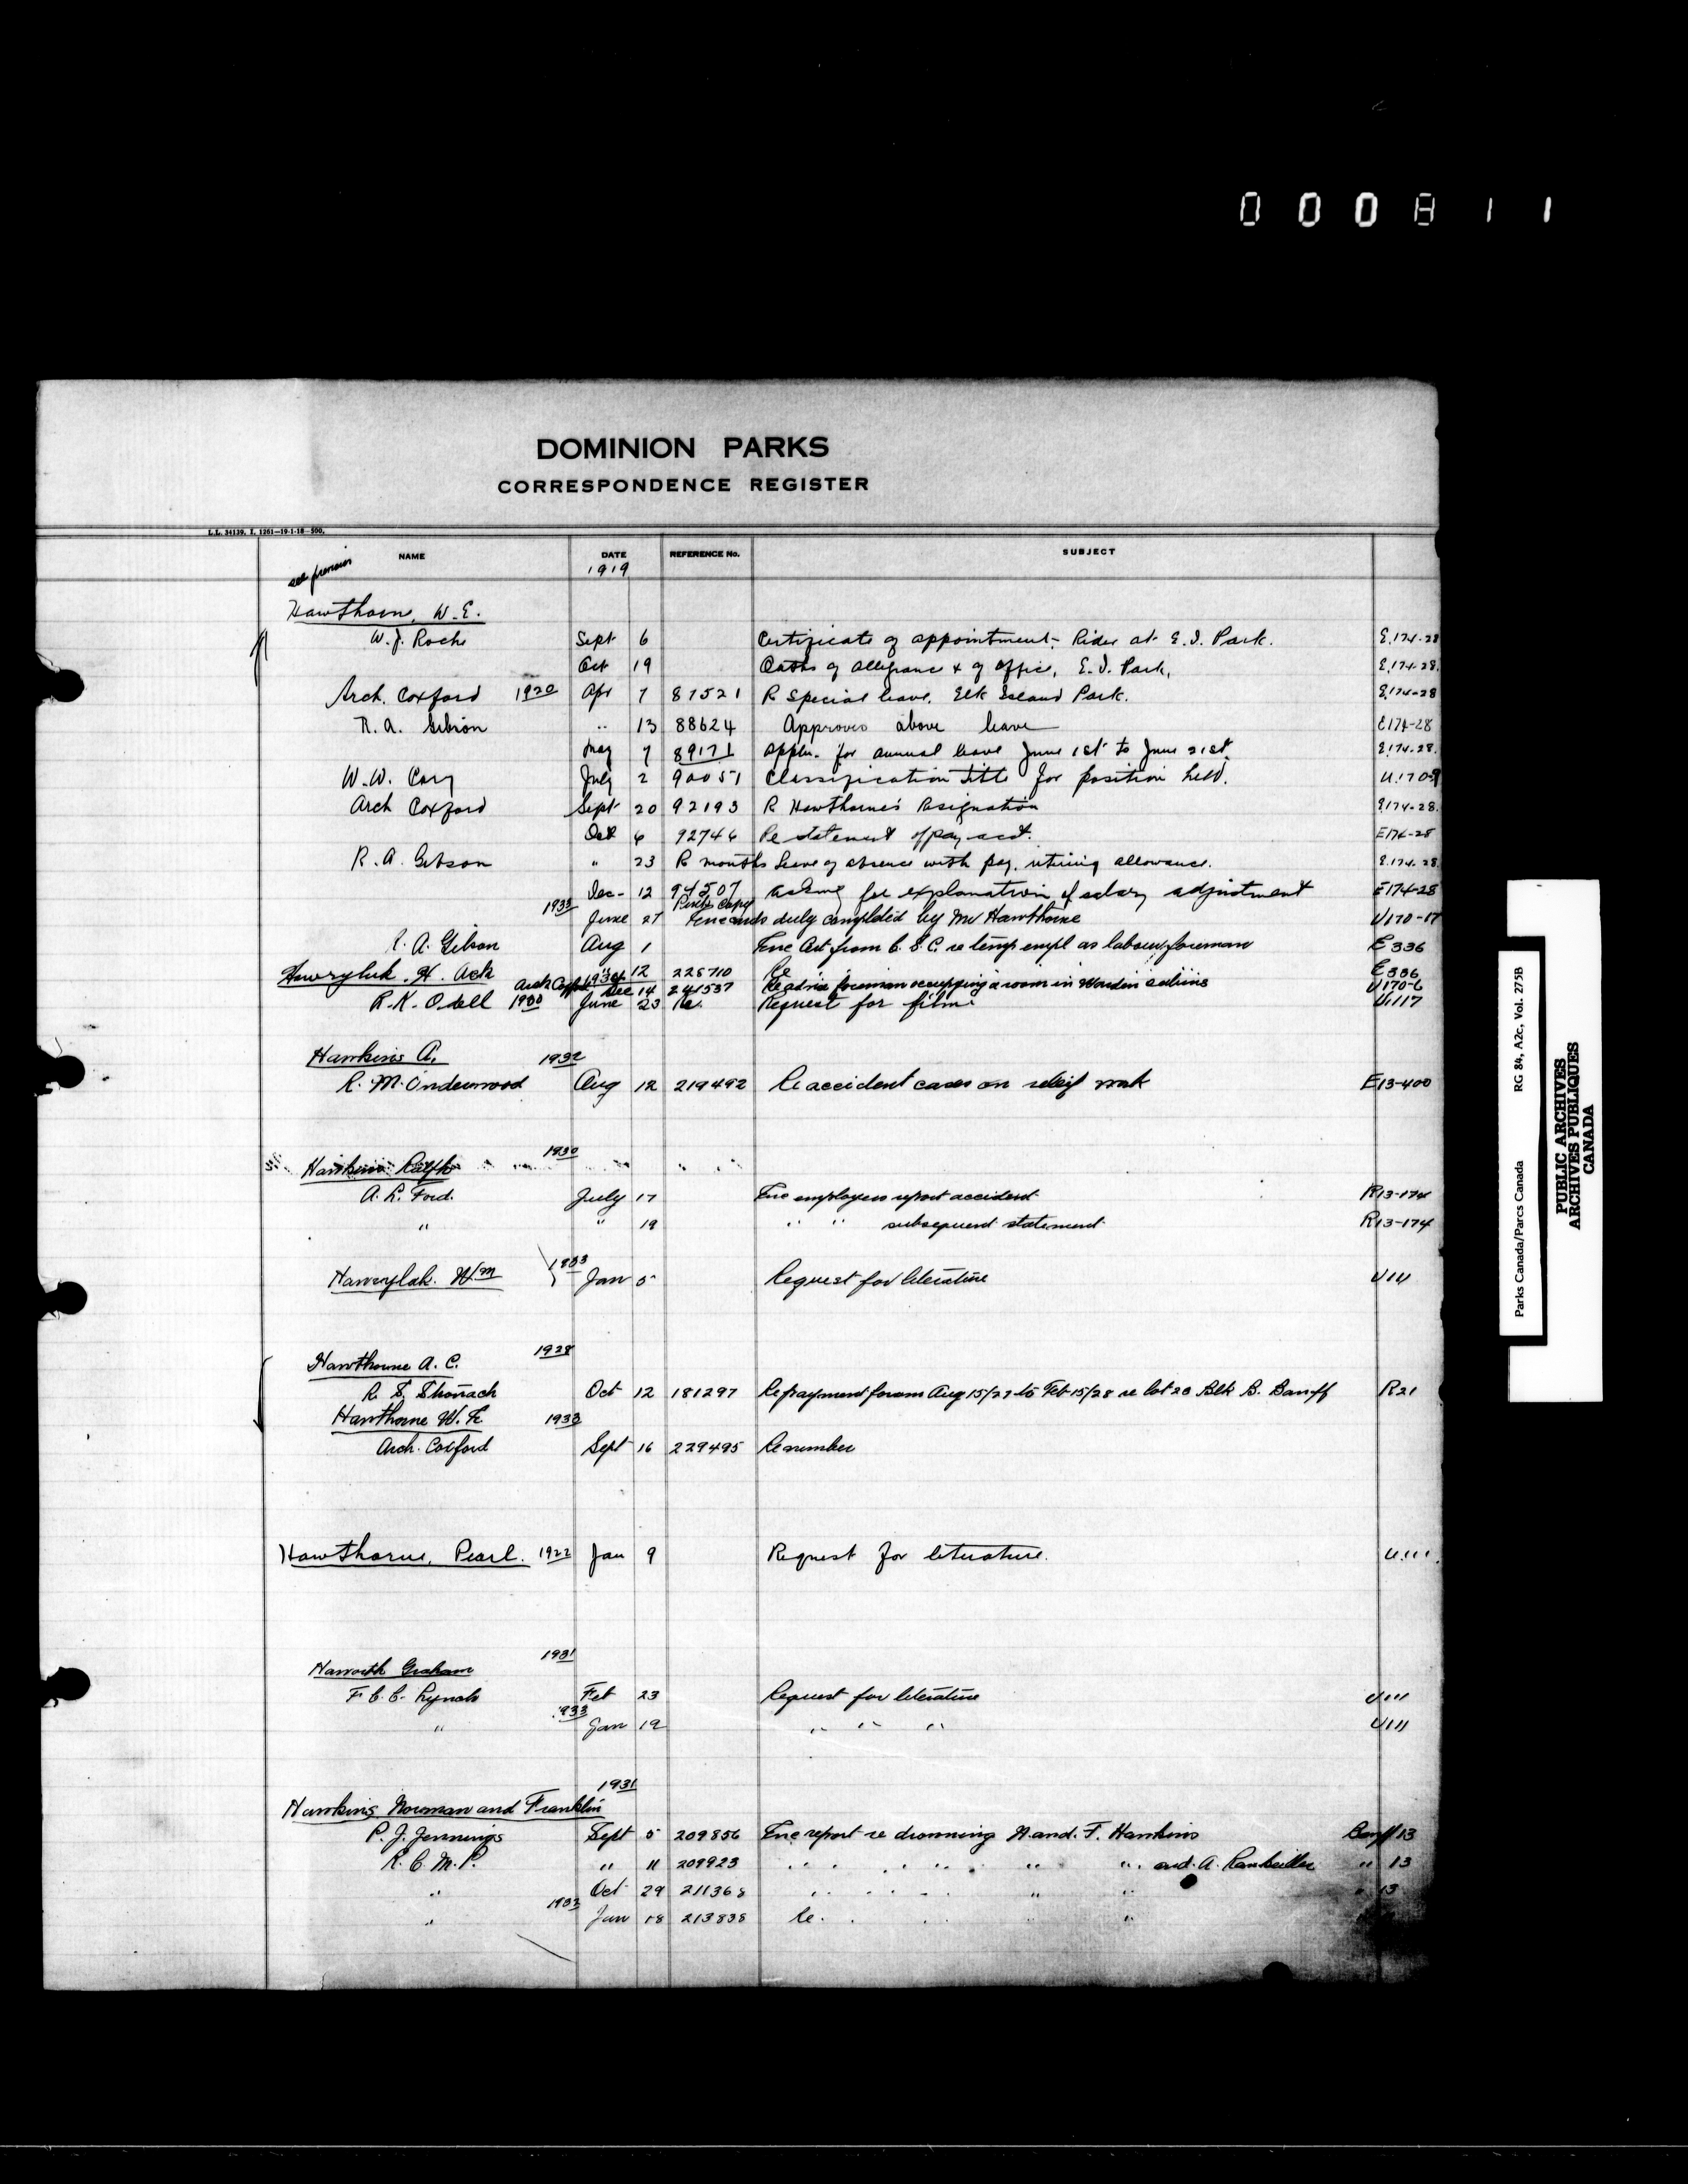 000811
DOMINION PARKS
CORRESPONDENCE REGISTER
L.L. 34139. I. 1261—19-1-18—500.
NAME DATE REFERENCE No. SUBJECT
see previous 1919
Hawthorn, W.E.
W.J. Roche Sept 6 Certificate of appointment- Rider at E.I. Park. E.174-28
Oct 19 Oaths of allegiance & of office, E.I. Park, E.174-28.
Arch. Coxford 1920 Apr 7 87521 R Special leave, Elk Island Park. E.174-28
R.A. Gibson " 13 88624 Approves above leave E174-28
May 7 89171 Appln. for annual leave June 1st to June 21st. E.174-28.
W.W. Cory July 2 90051 Classification Title for position held. U.170-9
Arch Coxford Sept 20 92193 R Hawthorne's Resignation E174-28.
Oct 6 92746 Re statement of pay acct. E174-28
R.A. Gibson " 23 R months leave of absence with pay, retiring allowance. E.174.28
Dec- 12 94507 asking for explanation of salary adjustment E174-28
1933 June 27 Pink Copy Enc cards duly completed by Mr Hawthorne U170-17
R.A. Gibson Aug 1 Enc Cert from C.S.C. re temp empl as labour foreman E336
" 12 225710 Re E336
Arch Coxford 1934 Dec 14 241537 Re advise foreman occupying a room in Warden cabins U170-6
Hawryluk. H. Ack
R.K. Odell 1930 June 23 Re. Request for film. U117
Hawkins A. 1932
R.M. Underwood Aug 12 219492 Re accident cases on relief work E13-400
Hawkins Ralph 1930
A.L. Ford. July 17 Enc employees report accident R13-174
" " 19 " " subsequent statement R13-174
Haweryluk. Wm 1933 Jan 5 Request for literature U111
Hawthorne A.C. 1928
R.S. Stronach Oct 12 181297 Re payment from Aug 15/27 to Feb 15/28 re lot 20 Blk B. Banff R21
Hawthorne W.E. 1933
Arch. Coxford Sept 16 229495 Re number
Hawthorne, Pearl. 1922 Jan 9 Request for literature. U.111.
Haworth Graham 1931
F.C.C. Lynch Feb 23 Request for literature U111
" 1933 Jan 19 " " " U111
1931
Hawkins Norman and Franklin
P.J. Jennings Sept 5 209856 Enc report re drowning N. and F. Hawkins Banff 13
R.C.M.P. " 11 209923 " " " " " " " and A. " 13
" Oct 29 211368 " " " " " " " 13
" 1932 Jan 18 213838 Re. " " " "
Parks Canada/Parcs Canada RG 84, A2c, Vol. 275B
PUBLIC ARCHIVES
ARCHIVES PUBLIQUES
CANADA